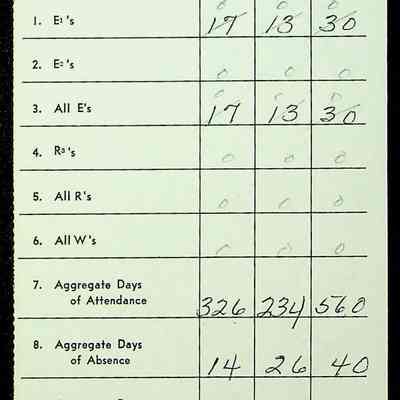 0 0 0
1. E1's 17 13 30
2. E2's 0 0 0
0 0 0
3. All E's 17 13 30
4. R3's 0 0 0
5. All R's 0 0 0
6. All W's 0 0 0
7. Aggregate Days
of Attendance 326 234 560
8. Aggregate Days
of Absence 14 26 40